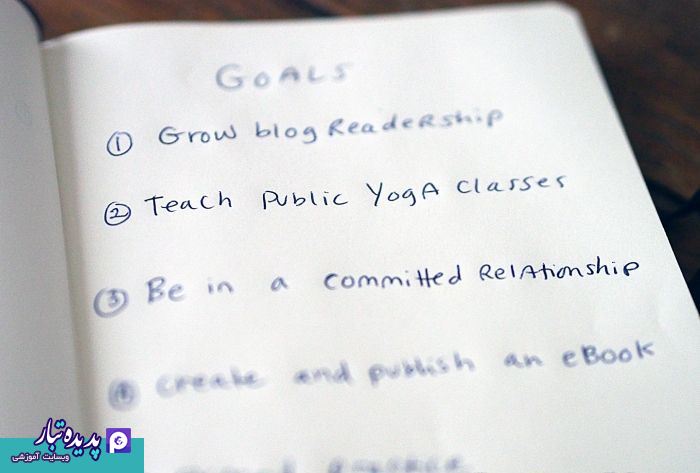 GOALS
① Grow blog Readership
② Teach Public Yoga Classes
③ Be in a committed Relationship
④ create and publish an eBook
پدیده تبار
وبسایت آموزشی